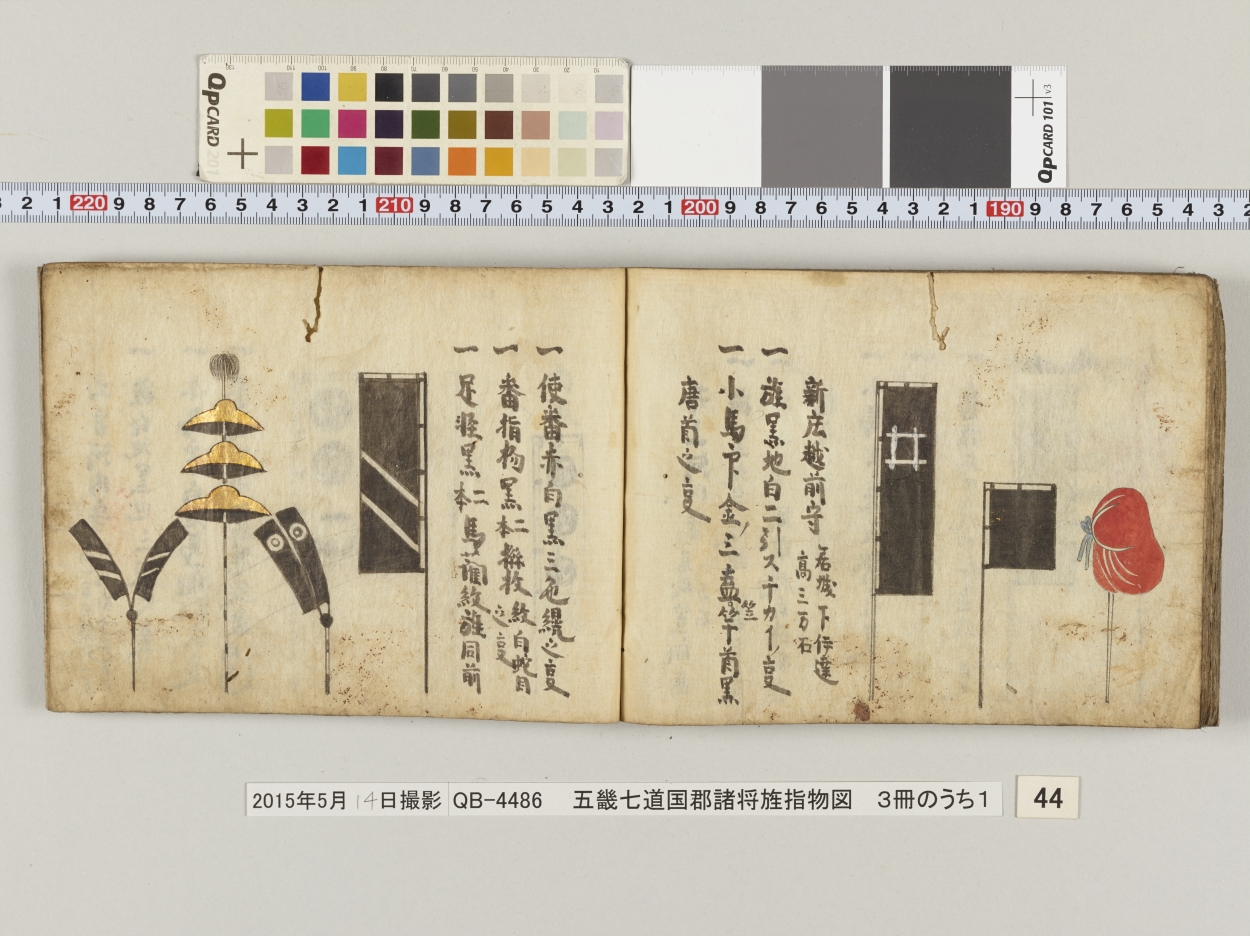 QPCARD 201
QPCARD 101 v3
3 2 1 220 9 8 7 6 5 4 3 2 1 210 9 8 7 6 5 4 3 2 1 200 9 8 7 6 5 4 3 2 1 190 9 8 7 6 5 4 3 2
新庄越前守
居城下伊達
高三万石
一旗黒地白二引スチカイノ叓
一小馬印金ノ三盖竿首黒
笠
唐首之叓
一使番赤白黒三色緄之叓
一番指物黒二本 紋白蛇目
之叓
一足軽黒二本馬 紋旗同前
2015年5月14日撮影 QB-4486 五畿七道国郡諸将旌指物図 3冊のうち1
44